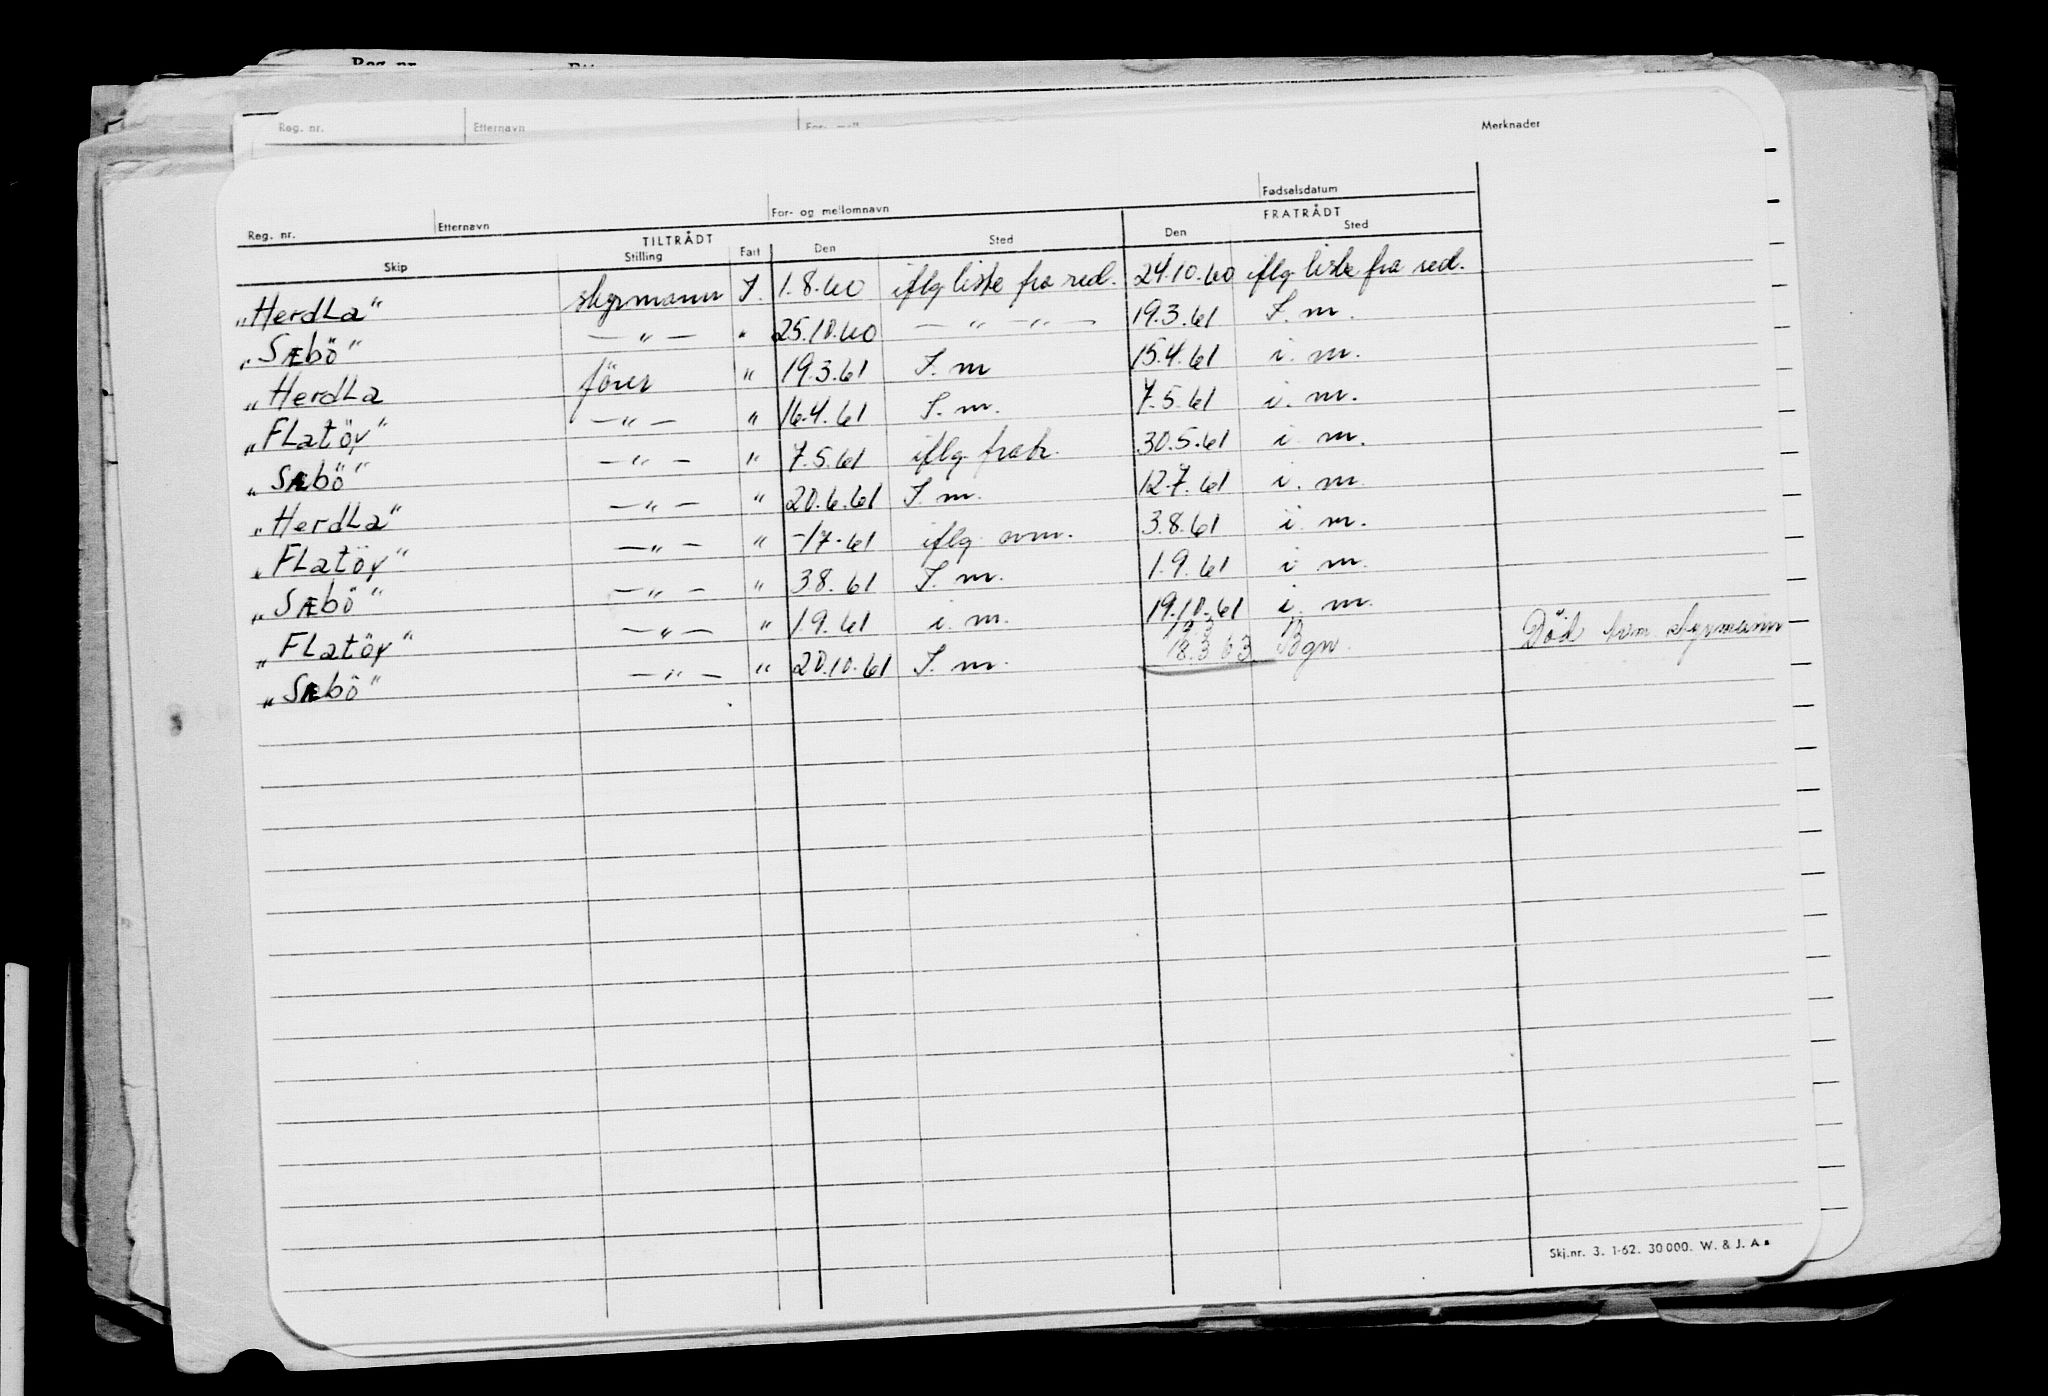 Reg. nr. Etternavn
Reg. nr. Etternavn
Merknader
Reg. nr. Etternavn For- og mellomnavn Fødselsdatum
TILTRÅDT FRATRÅDT
Skip Stilling Fart Den Sted Den Sted
„HerdLa" styrmann I. 1.8.60 iflg liste fra red. 24.10.60 iflg liste fra red.
„SÆbö" — „ — „ 25.10.60 — „ — „ — 19.3.61 I. m.
„HerdLa förer „ 19.3.61 I. m 15.4.61 i. m.
„FLatöy" — „ — „ 16.4.61 I. m. 7.5.61 i. m.
„SÆbö" — „ — „ 7.5.61 iflg fratr. 30.5.61 i. m.
„HerdLa" — „ — „ 20.6.61 I. m. 12.7.61 i. m.
„FLatöy" — „ — „ -17-61 iflg. 3.8.61 i. m.
„SÆbö" — „ — „ 3.8.61 I. m. 1.9.61 i m.
„FLatöy" — „ — „ 1.9.61 i. m. 19.10.61 i. m.
„SÆbö" — „ — „ 20.10.61 I. m. 18.3 63 Bgn. Död som styrmann
Skj.nr. 3. 1-62. 30 000. W. & J. A s